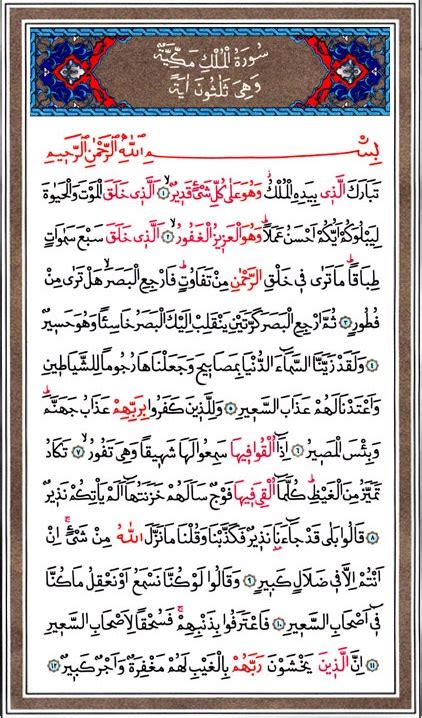 سُورَةُ الْمُلْكِ مَكِّيَّةٌ
وَهِيَ ثَلٰثُونَ اٰيَةً
بِسْمِ اللّٰهِ الرَّحْمٰنِ الرَّحٖيمِ
تَبَارَكَ الَّذٖى بِيَدِهِ الْمُلْكُ وَهُوَ عَلٰى كُلِّ شَىْءٍ قَدٖيرٌ ﴿١﴾ اَلَّذٖى خَلَقَ الْمَوْتَ وَالْحَيٰوةَ
لِيَبْلُوَكُمْ اَيُّكُمْ اَحْسَنُ عَمَلًا وَهُوَ الْعَزٖيزُ الْغَفُورُ ﴿٢﴾ اَلَّذٖى خَلَقَ سَبْعَ سَمٰوَاتٍ
طِبَاقًا مَا تَرٰى فٖى خَلْقِ الرَّحْمٰنِ مِنْ تَفَاوُتٍ فَارْجِعِ الْبَصَرَ هَلْ تَرٰى مِنْ
فُطُورٍ ﴿٣﴾ ثُمَّ ارْجِعِ الْبَصَرَ كَرَّتَيْنِ يَنْقَلِبْ اِلَيْكَ الْبَصَرُ خَاسِئًا وَهُوَ حَسٖيرٌ
﴿٤﴾ وَلَقَدْ زَيَّنَّا السَّمَاءَ الدُّنْيَا بِمَصَابٖيحَ وَجَعَلْنَاهَا رُجُومًا لِلشَّيَاطٖينِ
وَاَعْتَدْنَا لَهُمْ عَذَابَ السَّعٖيرِ ﴿٥﴾ وَلِلَّذٖينَ كَفَرُوا بِرَبِّهِمْ عَذَابُ جَهَنَّمَ
وَبِئْسَ الْمَصٖيرُ ﴿٦﴾ اِذَا اُلْقُوا فٖيهَا سَمِعُوا لَهَا شَهٖيقًا وَهِىَ تَفُورُ ﴿٧﴾ تَكَادُ
تَمَيَّزُ مِنَ الْغَيْظِ كُلَّمَا اُلْقِىَ فٖيهَا فَوْجٌ سَاَلَهُمْ خَزَنَتُهَا اَلَمْ يَاْتِكُمْ نَذٖيرٌ
﴿٨﴾ قَالُوا بَلٰى قَدْ جَاءَنَا نَذٖيرٌ فَكَذَّبْنَا وَقُلْنَا مَا نَزَّلَ اللّٰهُ مِنْ شَىْءٍ اِنْ
اَنْتُمْ اِلَّا فٖى ضَلَالٍ كَبٖيرٍ ﴿٩﴾ وَقَالُوا لَوْ كُنَّا نَسْمَعُ اَوْ نَعْقِلُ مَا كُنَّا
فٖى اَصْحَابِ السَّعٖيرِ ﴿١٠﴾ فَاعْتَرَفُوا بِذَنْبِهِمْ فَسُحْقًا لِاَصْحَابِ السَّعٖيرِ
﴿١١﴾ اِنَّ الَّذٖينَ يَخْشَوْنَ رَبَّهُمْ بِالْغَيْبِ لَهُمْ مَغْفِرَةٌ وَاَجْرٌ كَبٖيرٌ ﴿١٢﴾